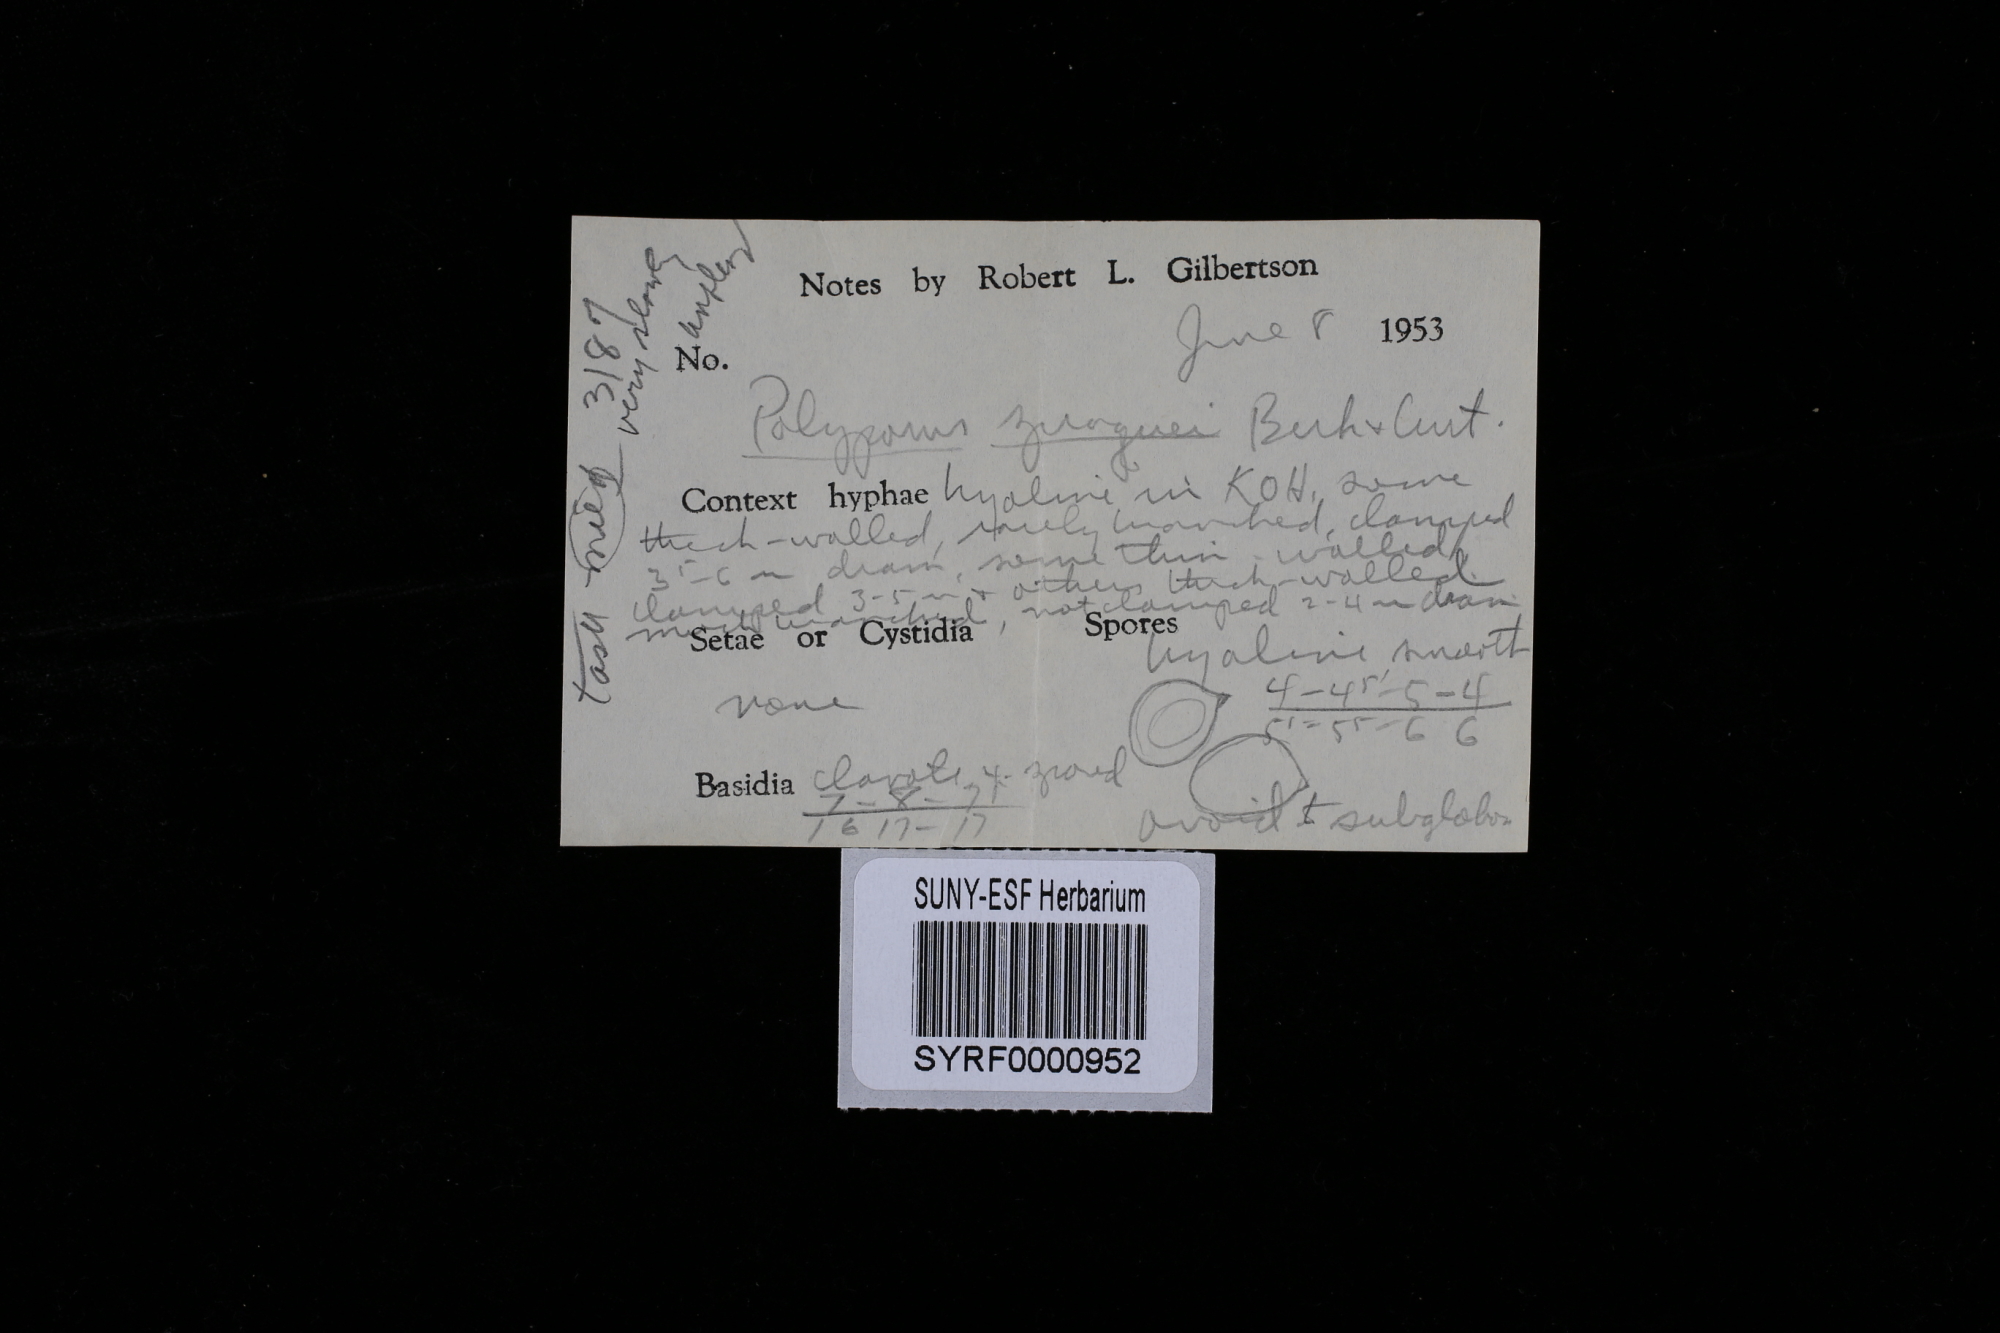 Notes by Robert L. Gilbertson
June 8 1953
No.
3187
very slowly
unpleas
taste mild
Polyporus spraguei Berk & Curt.
Context hyphae hyaline in KOH, some
thick-walled, rarely branched, clamped
3-6 µ diam, some thin-walled,
clamped 3-5 µ & others thick-walled
much branched, not clamped 2-4 µ diam
Setae or Cystidia Spores
hyaline, smooth
none
4-45-5-4
5-55-6 6
Basidia clavate, 4-spored
7-8-7
16 17-17
ovoid to subglobos
SUNY-ESF Herbarium
SYRF0000952